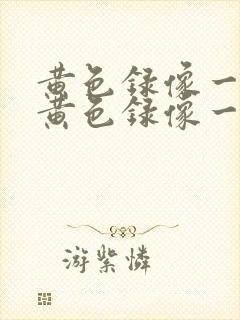 黄色録像一
黄色録像一
游紫憐